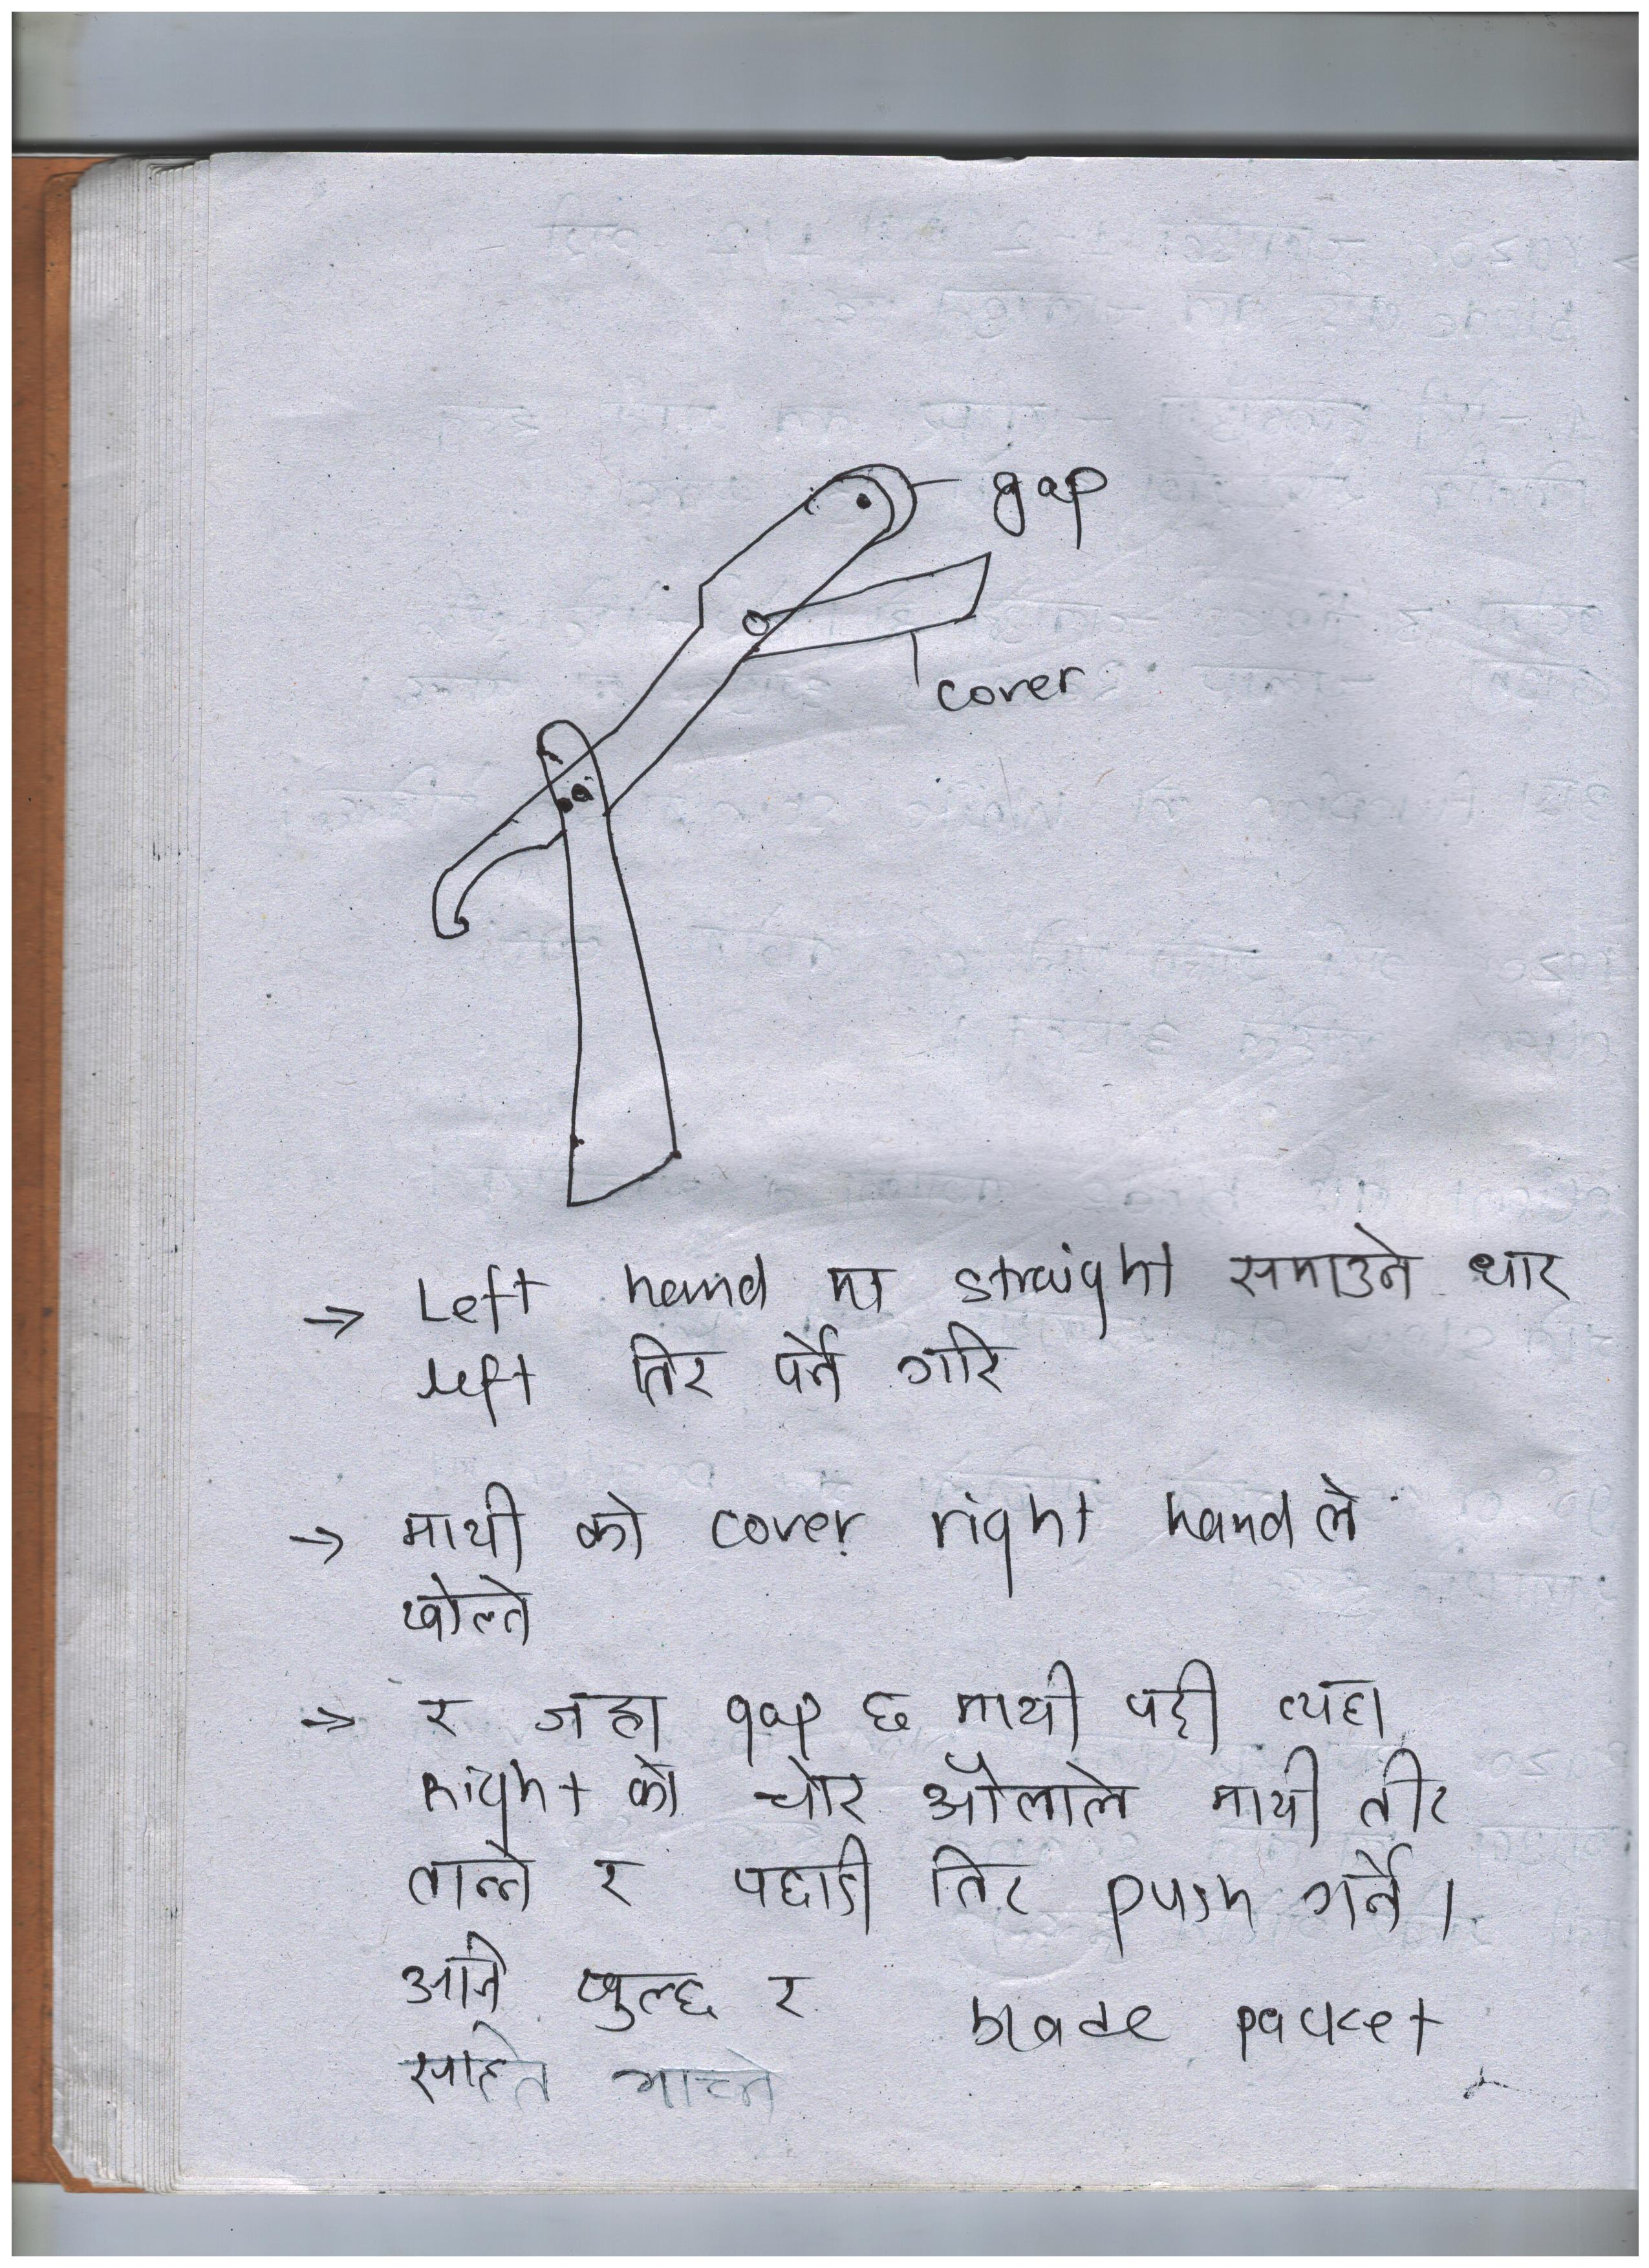 gap
cover
→ Left hand मा straight समाउने धार
left तिर पर्ने गरि
→ माथी को cover right hand ले
खोल्ने
→ र जहा gap छ माथी पट्टी त्यहा
Right को चोर औलाले माथी तीर
तान्ने र पछाडी तिर push गर्ने।
अनि खुल्छ र blade packet
सहित भाच्ने